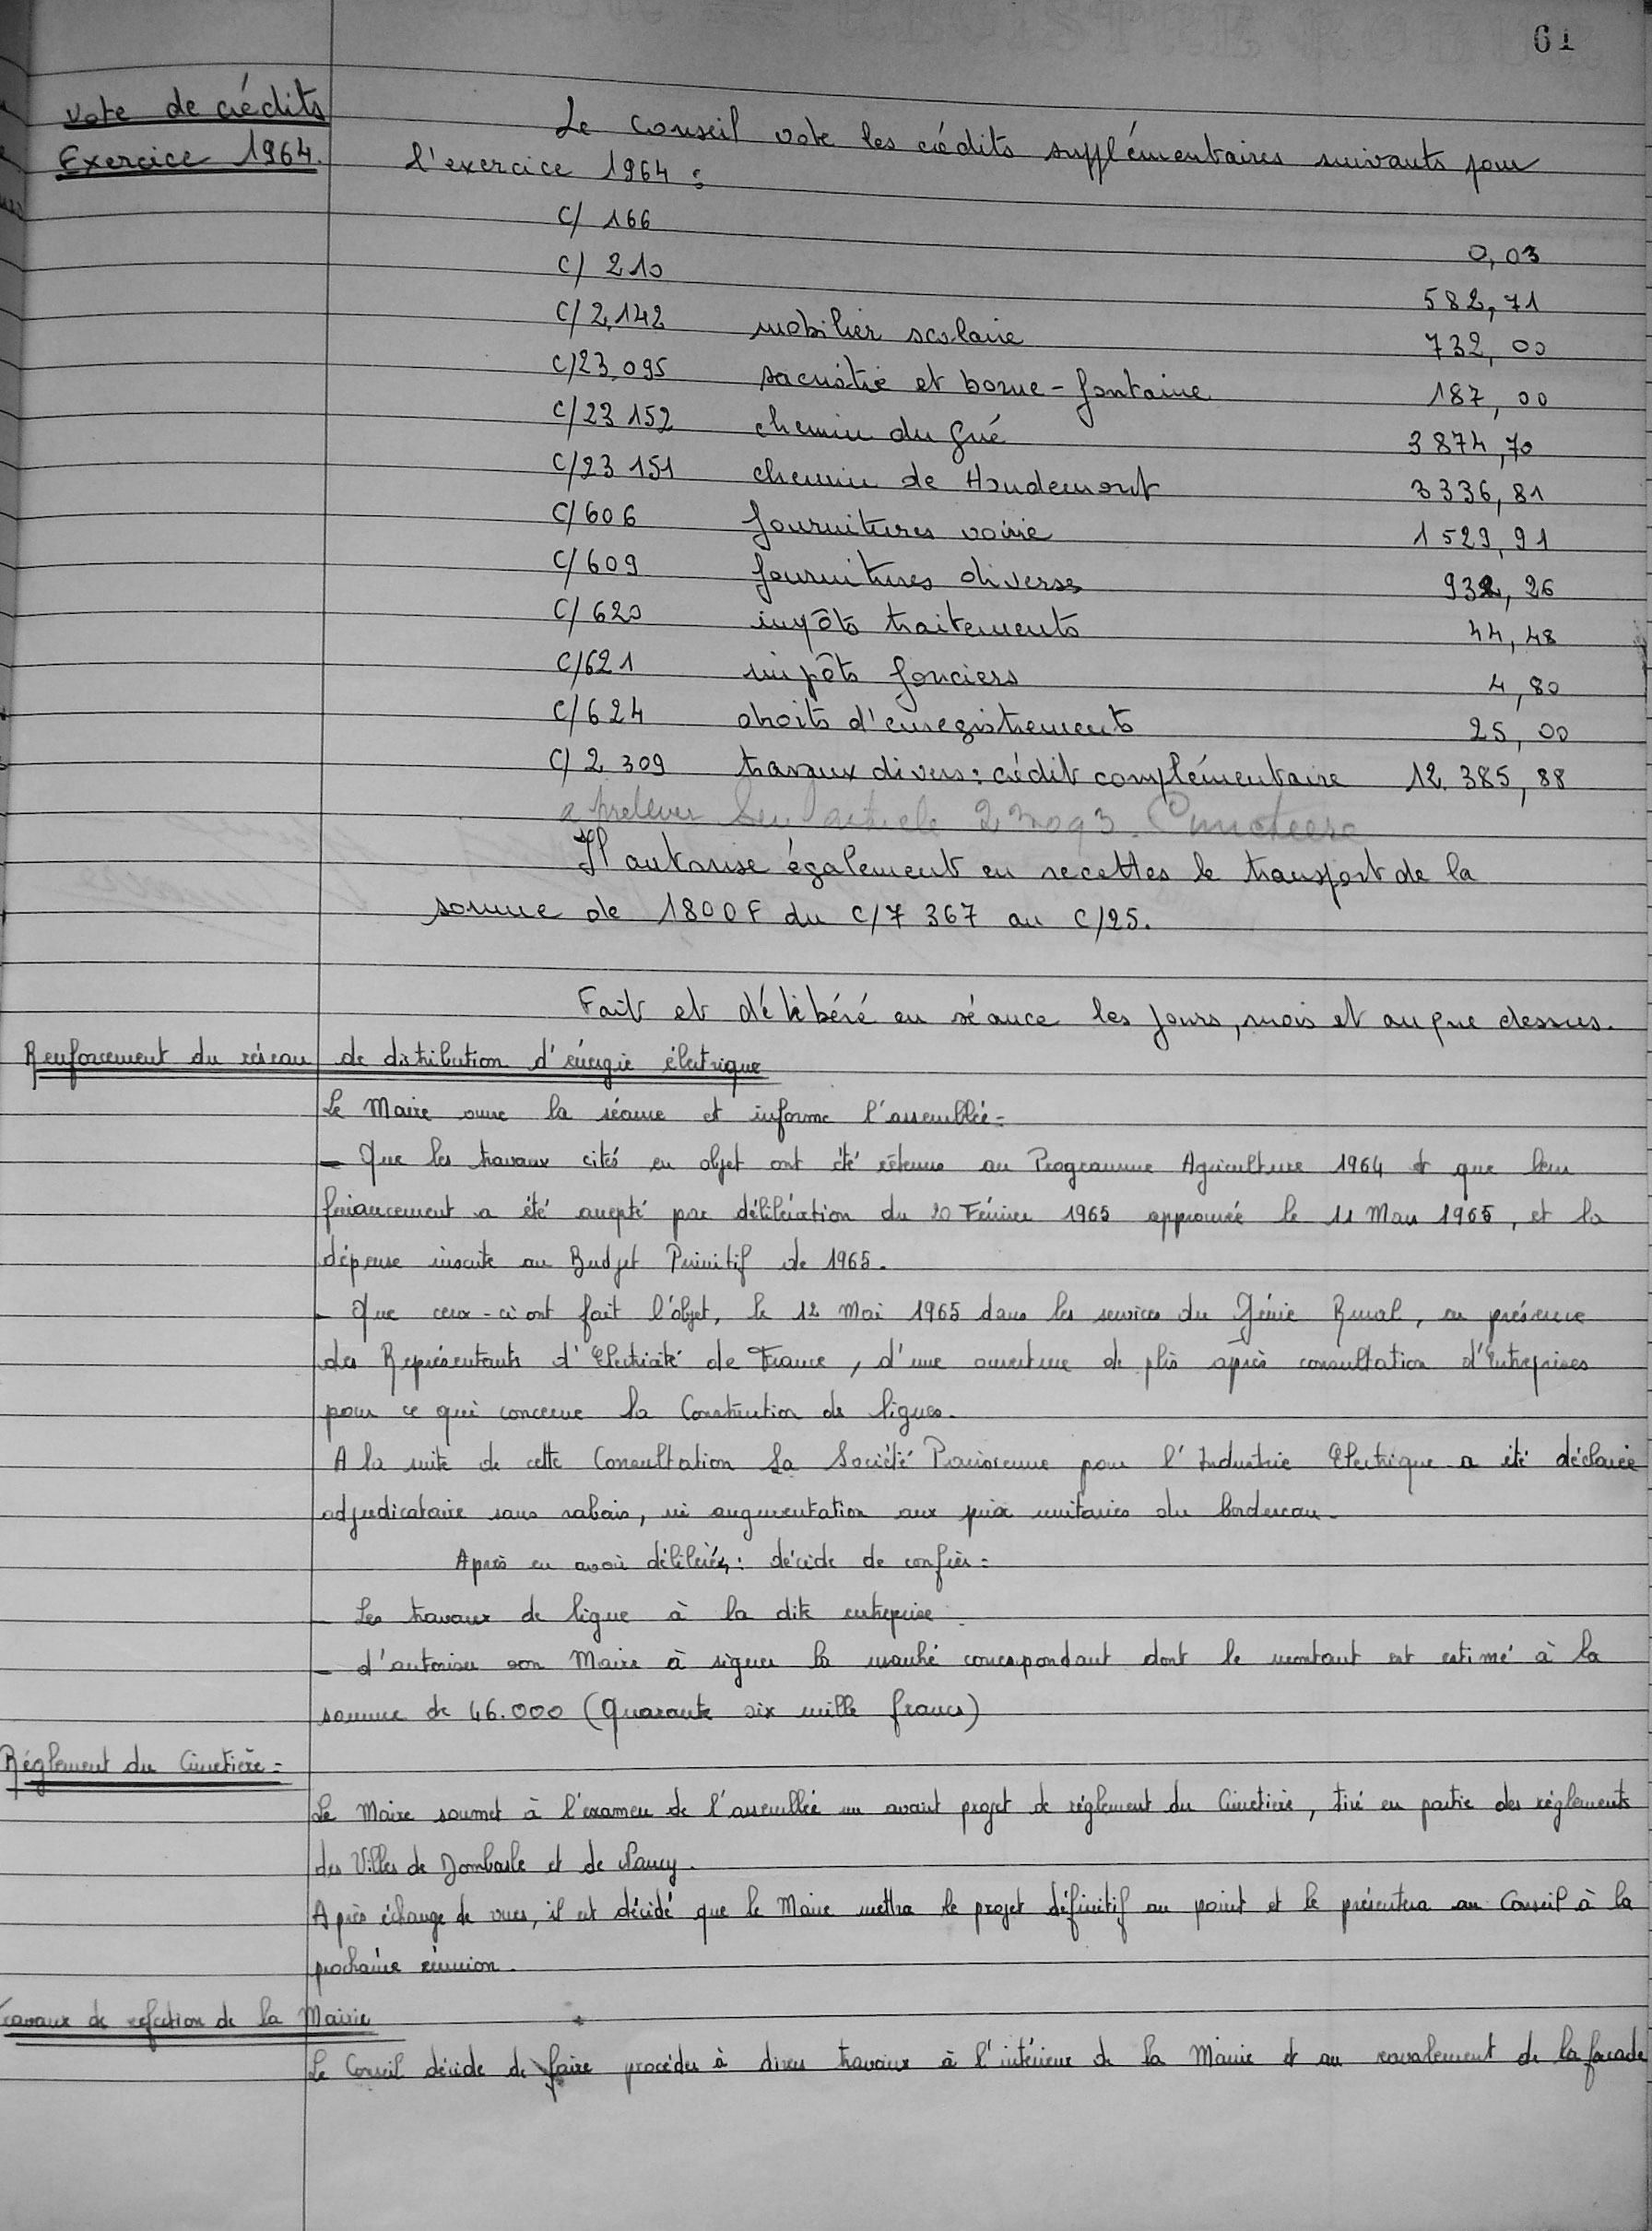 61
Vote de crédits
Exercice 1964.
Le Conseil vote les crédits supplémentaires suivants pour
l'exercice 1964 :
C/ 166 0,03
C/ 210 582,71
C/ 2,142 mobilier scolaire 732,00
C/23,095 sacristie et borne-fontaine 187,00
C/23 152 chemin du Gué 3874,70
C/23 151 chemin de Houdemont 3336,81
C/606 fournitures voirie 1529,91
C/609 fournitures diverses 932,26
C/620 impôts traitements 44,48
C/621 impôts fonciers 4,80
C/624 droits d'enregistrements 25,00
C/2 309 travaux divers : crédit complémentaire 12.385,88
a prelever Sur article 23093. Cimetiere
Il autorise également en recettes le transport de la
somme de 1800F du C/7 367 au C/25.
Fait et délibéré en séance les jours, mois et an que dessus.
Renforcement du réseau de distribution d'énergie électrique
Le Maire ouvre la séance et informe l'assemblée =
- Que les travaux cités en objet ont été retenus au Programme Agriculture 1964 et que leur
financement a été accepté par délibération du 20 Février 1965 approuvée le 11 Mars 1965, et la
dépense inscrite au Budget Primitif de 1965.
- Que ceux-ci ont fait l'objet, le 12 Mai 1965 dans les services du Génie Rural, en présence
des Représentants d'Electricité de France, d'une ouverture de plis après consultation d'Entreprises
pour ce qui concerne la Construction de lignes.
A la suite de cette Consultation la Société Parisienne pour l'Industrie Electrique a été déclarée
adjudicataire sans rabais, ni augmentation aux prix unitaires du bordereau.
Après en avoir délibéré, : décide de confier =
- Les travaux de ligne à la dite entreprise.
- d'autoriser son Maire à signer le marché correspondant dont le montant est estimé à la
somme de 46.000 (Quarante six mille francs)
Réglement du Cimetière =
Le Maire soumet à l'examen de l'assemblée un avant projet de réglement du Cimetière, tiré en partie des réglements
des Villes de Dombasle et de Nancy.
Après échange de vues, il est décidé que le Maire mettra le projet définitif au point et le présentera au Conseil à la
prochaine réunion.
Travaux de refection de la Mairie
Le Conseil décide de faire procéder à divers travaux à l'intérieur de la Mairie et au ravalement de la facade